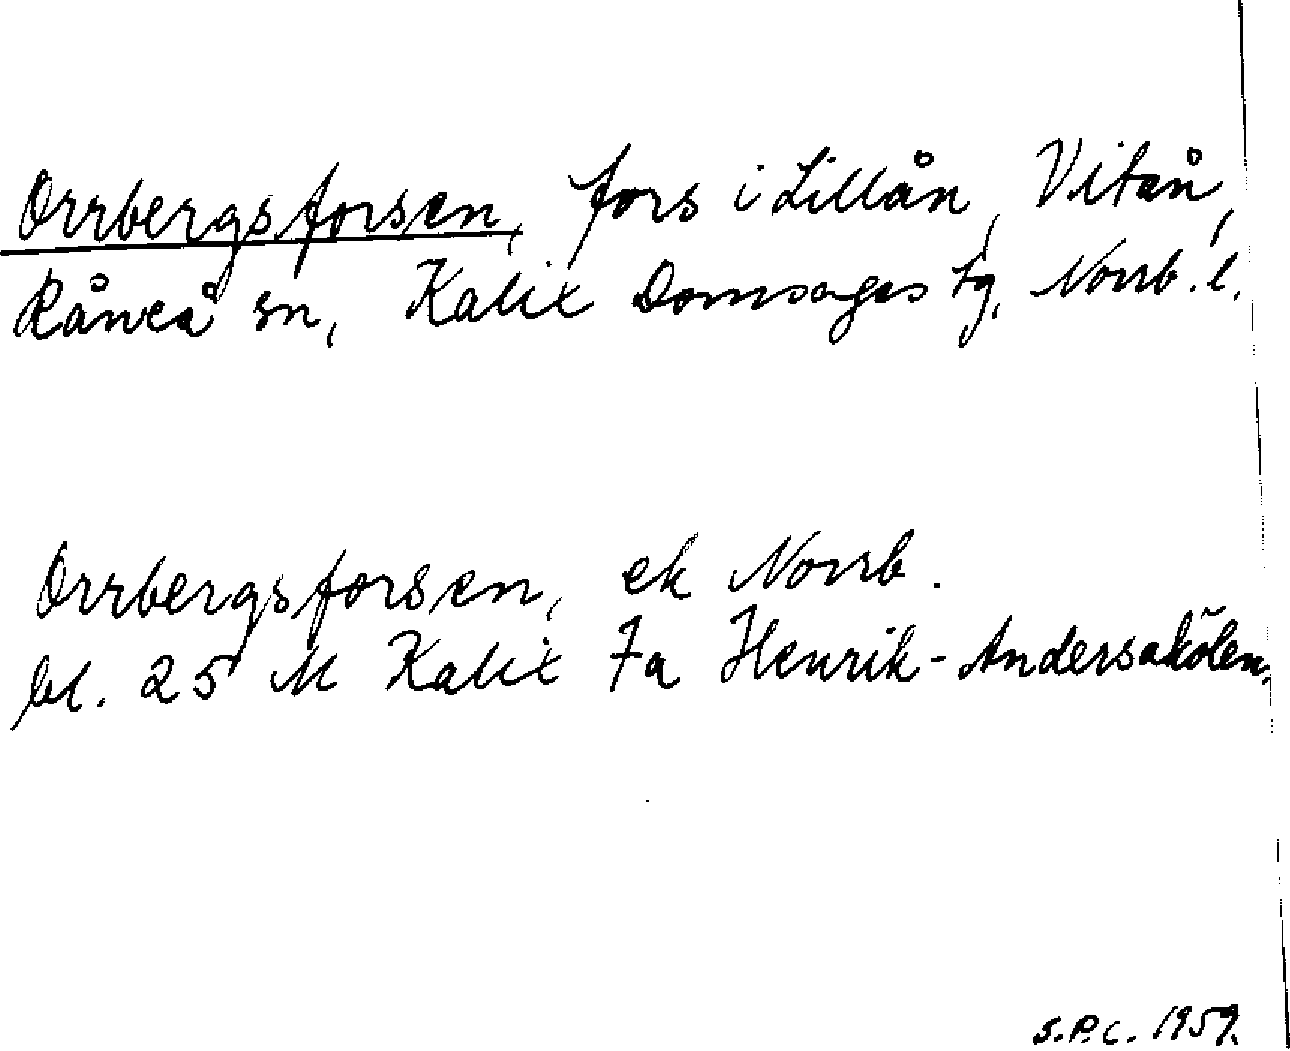 Orrbergsforsen, fors i Lillån, Vitån,
Råneå sn, Kalix Domsagas tg, Norrb. l.
Orrbergsforsen, ek Norrb.
bl. 25 M Kalix Fa Henrik-Andersakölen.
S.P.C. 1959.